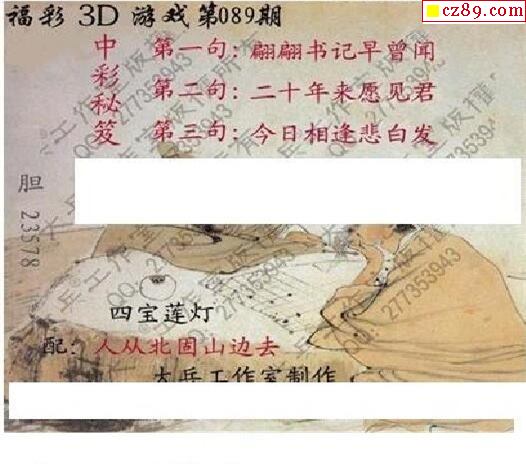 cz89.com
福彩 3D 游戏第089期
中彩秘笈
第一句：翩翩书记早曾闻
第二句：二十年来愿见君
第三句：今日相逢悲白发
胆 23578
四宝莲灯
配：人从北固山边去
大兵工作室制作
大兵工作室版权所有
QQ:277353943